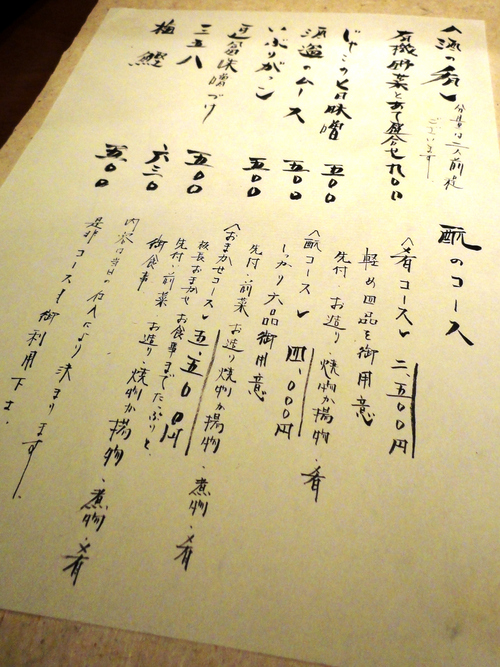 〈酒の肴〉
分量は二人前程
ございます
有機野菜とあて盛合せ 九〇〇
じゃこのヒヨ味噌 五〇〇
酒盗のムース 五〇〇
いぶりがっこ 五〇〇
味噌づくり
三五八 五〇〇
梅鰹 六三〇
五〇〇
酛のコース
〈肴コース〉 二、五〇〇円
軽め四品を御用意
先付・お造り 焼物か揚物・肴
〈酛コース〉 四、〇〇〇円
しっかり六品御用意
先付・前菜 お造り 焼物か揚物・煮物・肴
〈おまかせコース〉 五、五〇〇円
板長おまかせ お食事までたっぷりと
先付・前菜 お造り・焼物か揚物・煮物・肴
御食事
内容は当日の仕入により決まります
是非コースを御利用下さい